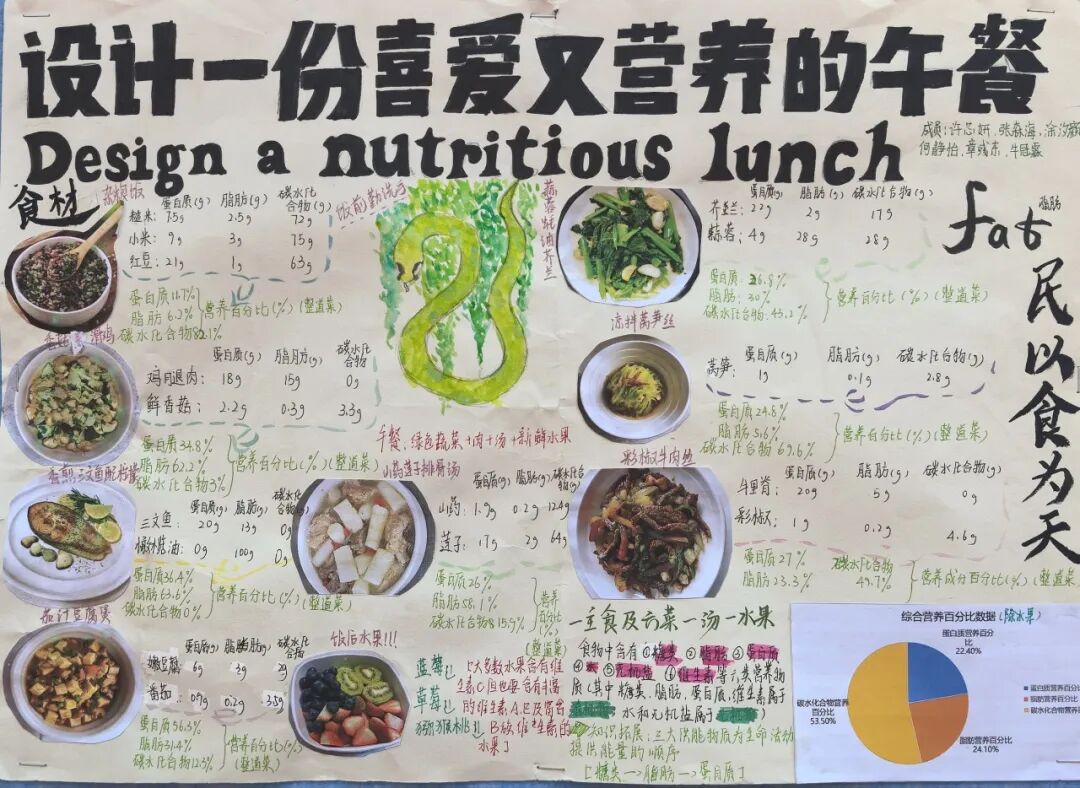 设计一份喜爱又营养的午餐
Design a nutritious lunch
食材
杂粮饭
蛋白质(g) 脂肪(g) 碳水化合物(g)
糙米: 7.5g 2.5g 72g
小米: 9g 3g 75g
红豆: 21g 1g 63g
蛋白质11.7%
脂肪6.2%
碳水化合物82.1%
营养百分比(%)(整道菜)
滑鸡
蛋白质(g) 脂肪(g) 碳水化合物
鸡腿肉: 18g 15g 0g
鲜香菇: 2.2g 0.3g 3.3g
蛋白质34.8%
脂肪62.2%
碳水化合物3%
营养百分比(%)(整道菜)
香煎三文鱼配柠檬
蛋白质(g) 脂肪(g) 碳水化合物(g)
三文鱼: 20g 13g 0g
橄榄油: 0g 100g 0g
蛋白质36.4%
脂肪63.6%
碳水化合物0%
营养百分比(%)(整道菜)
茄汁豆腐煲
蛋白质(g) 脂肪(g) 碳水化合物
嫩豆腐: 6g 3g 2g
番茄: 0.9g 0.2g 3.5g
蛋白质56.3%
脂肪31.4%
碳水化合物12.3%
营养百分比(%)(整道菜)
饭前勤洗手
午餐:绿色蔬菜+肉+汤+新鲜水果
山药莲子排骨汤
蛋白质(g) 脂肪(g) 碳水化合物(g)
山药: 1.9g 0.2g 12.4g
莲子: 17g 2g 64g
蛋白质26%
脂肪58.1%
碳水化合物15.9%
营养百分比(%)(整道菜)
饭后水果!!!
蓝莓
草莓
猕猴桃
[大多数水果含有维生素C,但也要含有丰富的维生素A、E及富含B族维生素的水果]
成员:许芯妍,张森海,
何静怡,
蒜蓉蚝油芥兰
蛋白质(g) 脂肪(g) 碳水化合物(g)
芥兰: 2.2g 2g 17g
蒜蓉: 4g 28g 28g
蛋白质:26.8%
脂肪:30%
碳水化合物:43.2%
营养百分比(%)(整道菜)
凉拌莴笋丝
蛋白质(g) 脂肪(g) 碳水化合物(g)
莴笋: 1g 0.1g 2.8g
蛋白质24.8%
脂肪5.6%
碳水化合物69.6%
营养百分比(%)(整道菜)
彩椒牛肉丝
蛋白质(g) 脂肪(g) 碳水化合物(g)
牛里脊: 20g 5g 0g
彩椒: 1g 0.2g 4.6g
蛋白质27%
脂肪23.3%
碳水化合物49.7%
营养成分百分比(%)(整道菜)
fat 脂肪
民以食为天
一主食及六菜一汤一水果
食物中含有①糖类 ②脂肪 ③蛋白质
④水 ⑤无机盐 ⑥维生素等六类营养物
质(其中糖类、脂肪、蛋白质、维生素属于
水和无机盐属于
知识拓展:三大供能物质为生命活动
提供能量的顺序
[糖类→脂肪→蛋白质]
综合营养百分比数据(除水果)
蛋白质营养百分比
22.40%
脂肪营养百分比
24.10%
碳水化合物营养百分比
53.50%
蛋白质营养百分比
脂肪营养百分比
碳水化合物营养百分比